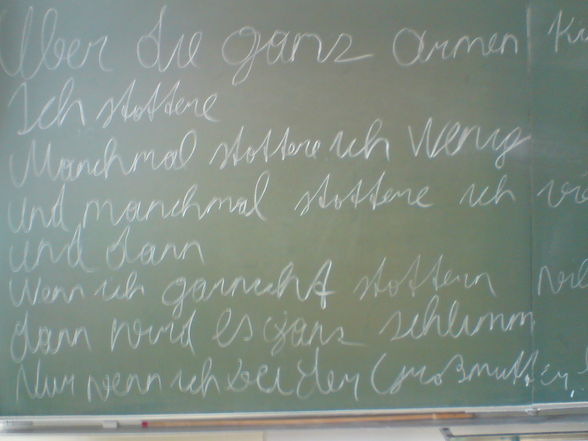 Über die ganz armen
Ich stottere
Manchmal stottere ich wenig
und manchmal stottere ich
und dann
Wenn ich garnicht stottern
dann wird es ganz schlimm
Nur wenn ich bei der Großmutter